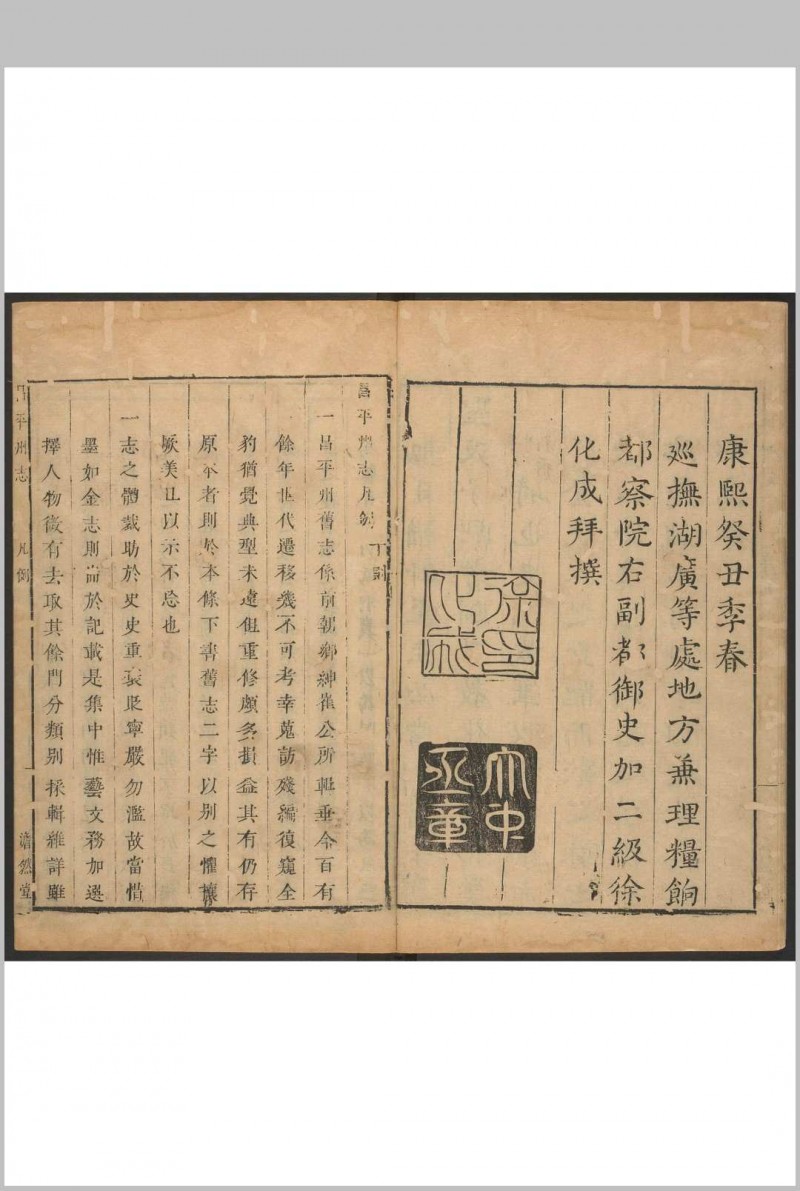 康熙癸丑季春
巡撫湖廣等處地方兼理糧餉
都察院右副都御史加二級徐
化成拜撰
徐印化成
大中丞章
昌平州志凡例
一昌平州舊志係前朝鄉紳崔公所輯垂今百有
餘年世代遷移幾不可考幸蒐訪殘編復窺全
豹猶覺典型未遠但重修頗多損益其有仍存
原本者則於本條下書舊志二字以别之懼攘
厥美且以示不忘也
一志之體裁助於史史重褒貶寧嚴勿濫故當惜
墨如金志則耑於記載是集中惟藝文務加選
擇人物微有去取其餘門分類别採輯維詳雖
昌平州志 凡例 澹然堂